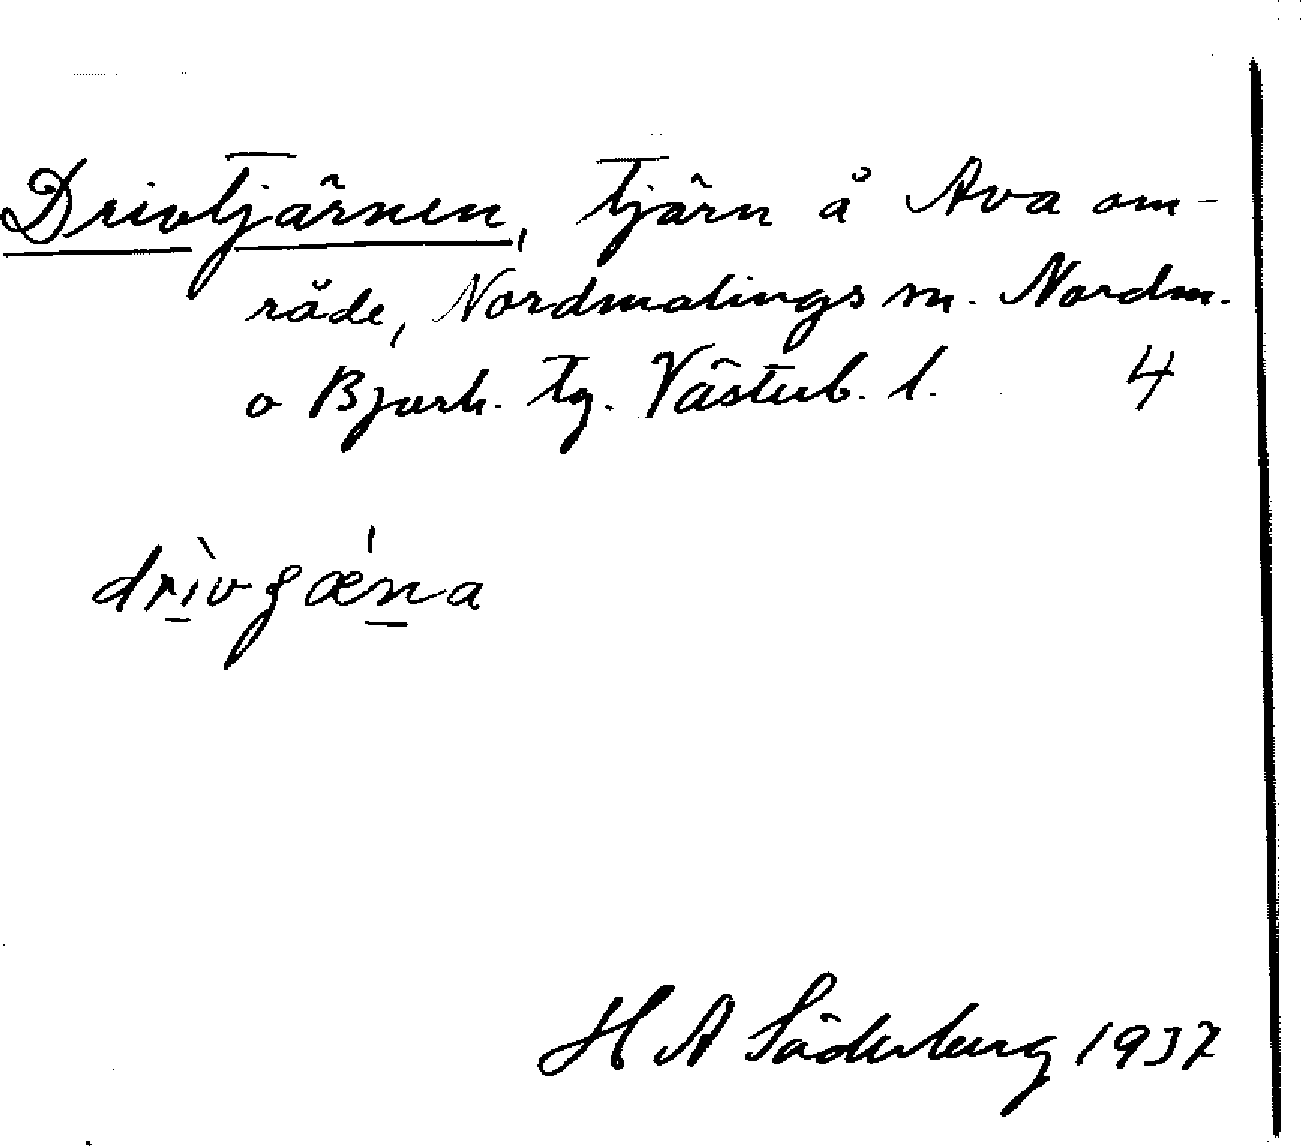 Drivtjärnen, tjärn å Ava om-
råde, Nordmalings sn. Nordm.
o Bjurh. tg. Västerb. l. 4
H A Söderberg 1937